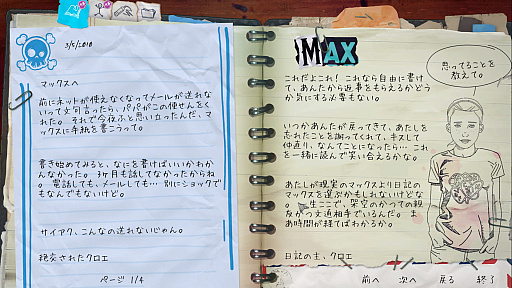 3/5/2010
マックスへ
前にネットが使えなくなってメールが送れな
いって文句言ったら、パパがこの便せんをく
れた。それで今夜ふと思い立ったんだ、マ
ックスに手紙を書こうって。
書き始めてみると、なにを書けばいいかわか
んなかった。3ヶ月も話してなかったからね
。電話しても、メールしても… 別にショックで
もなんでもないけど。
サイアク、こんなの送れないじゃん。
絶交されたクロエ
ページ 1/4
MAX
これだよこれ！ これなら自由に書け
て、あんたから返事をもらえるかどう
か気にする必要もない。
いつかあんたが戻ってきて、あたしを
忘れたことを謝ってくれて、キスして
仲直り、なんてことになったら… これ
を一緒に読んで笑い合えるかな。
あたしが現実のマックスより日記の
マックスを選ぶかもしれないけどな
。一生ここで、架空のかつての親
友がつ文通相手でいるんだ。ま
あ時間が経てばわかるか。
日記の主、クロエ
思ってることを
教えて。
前へ 次へ 戻る 終了